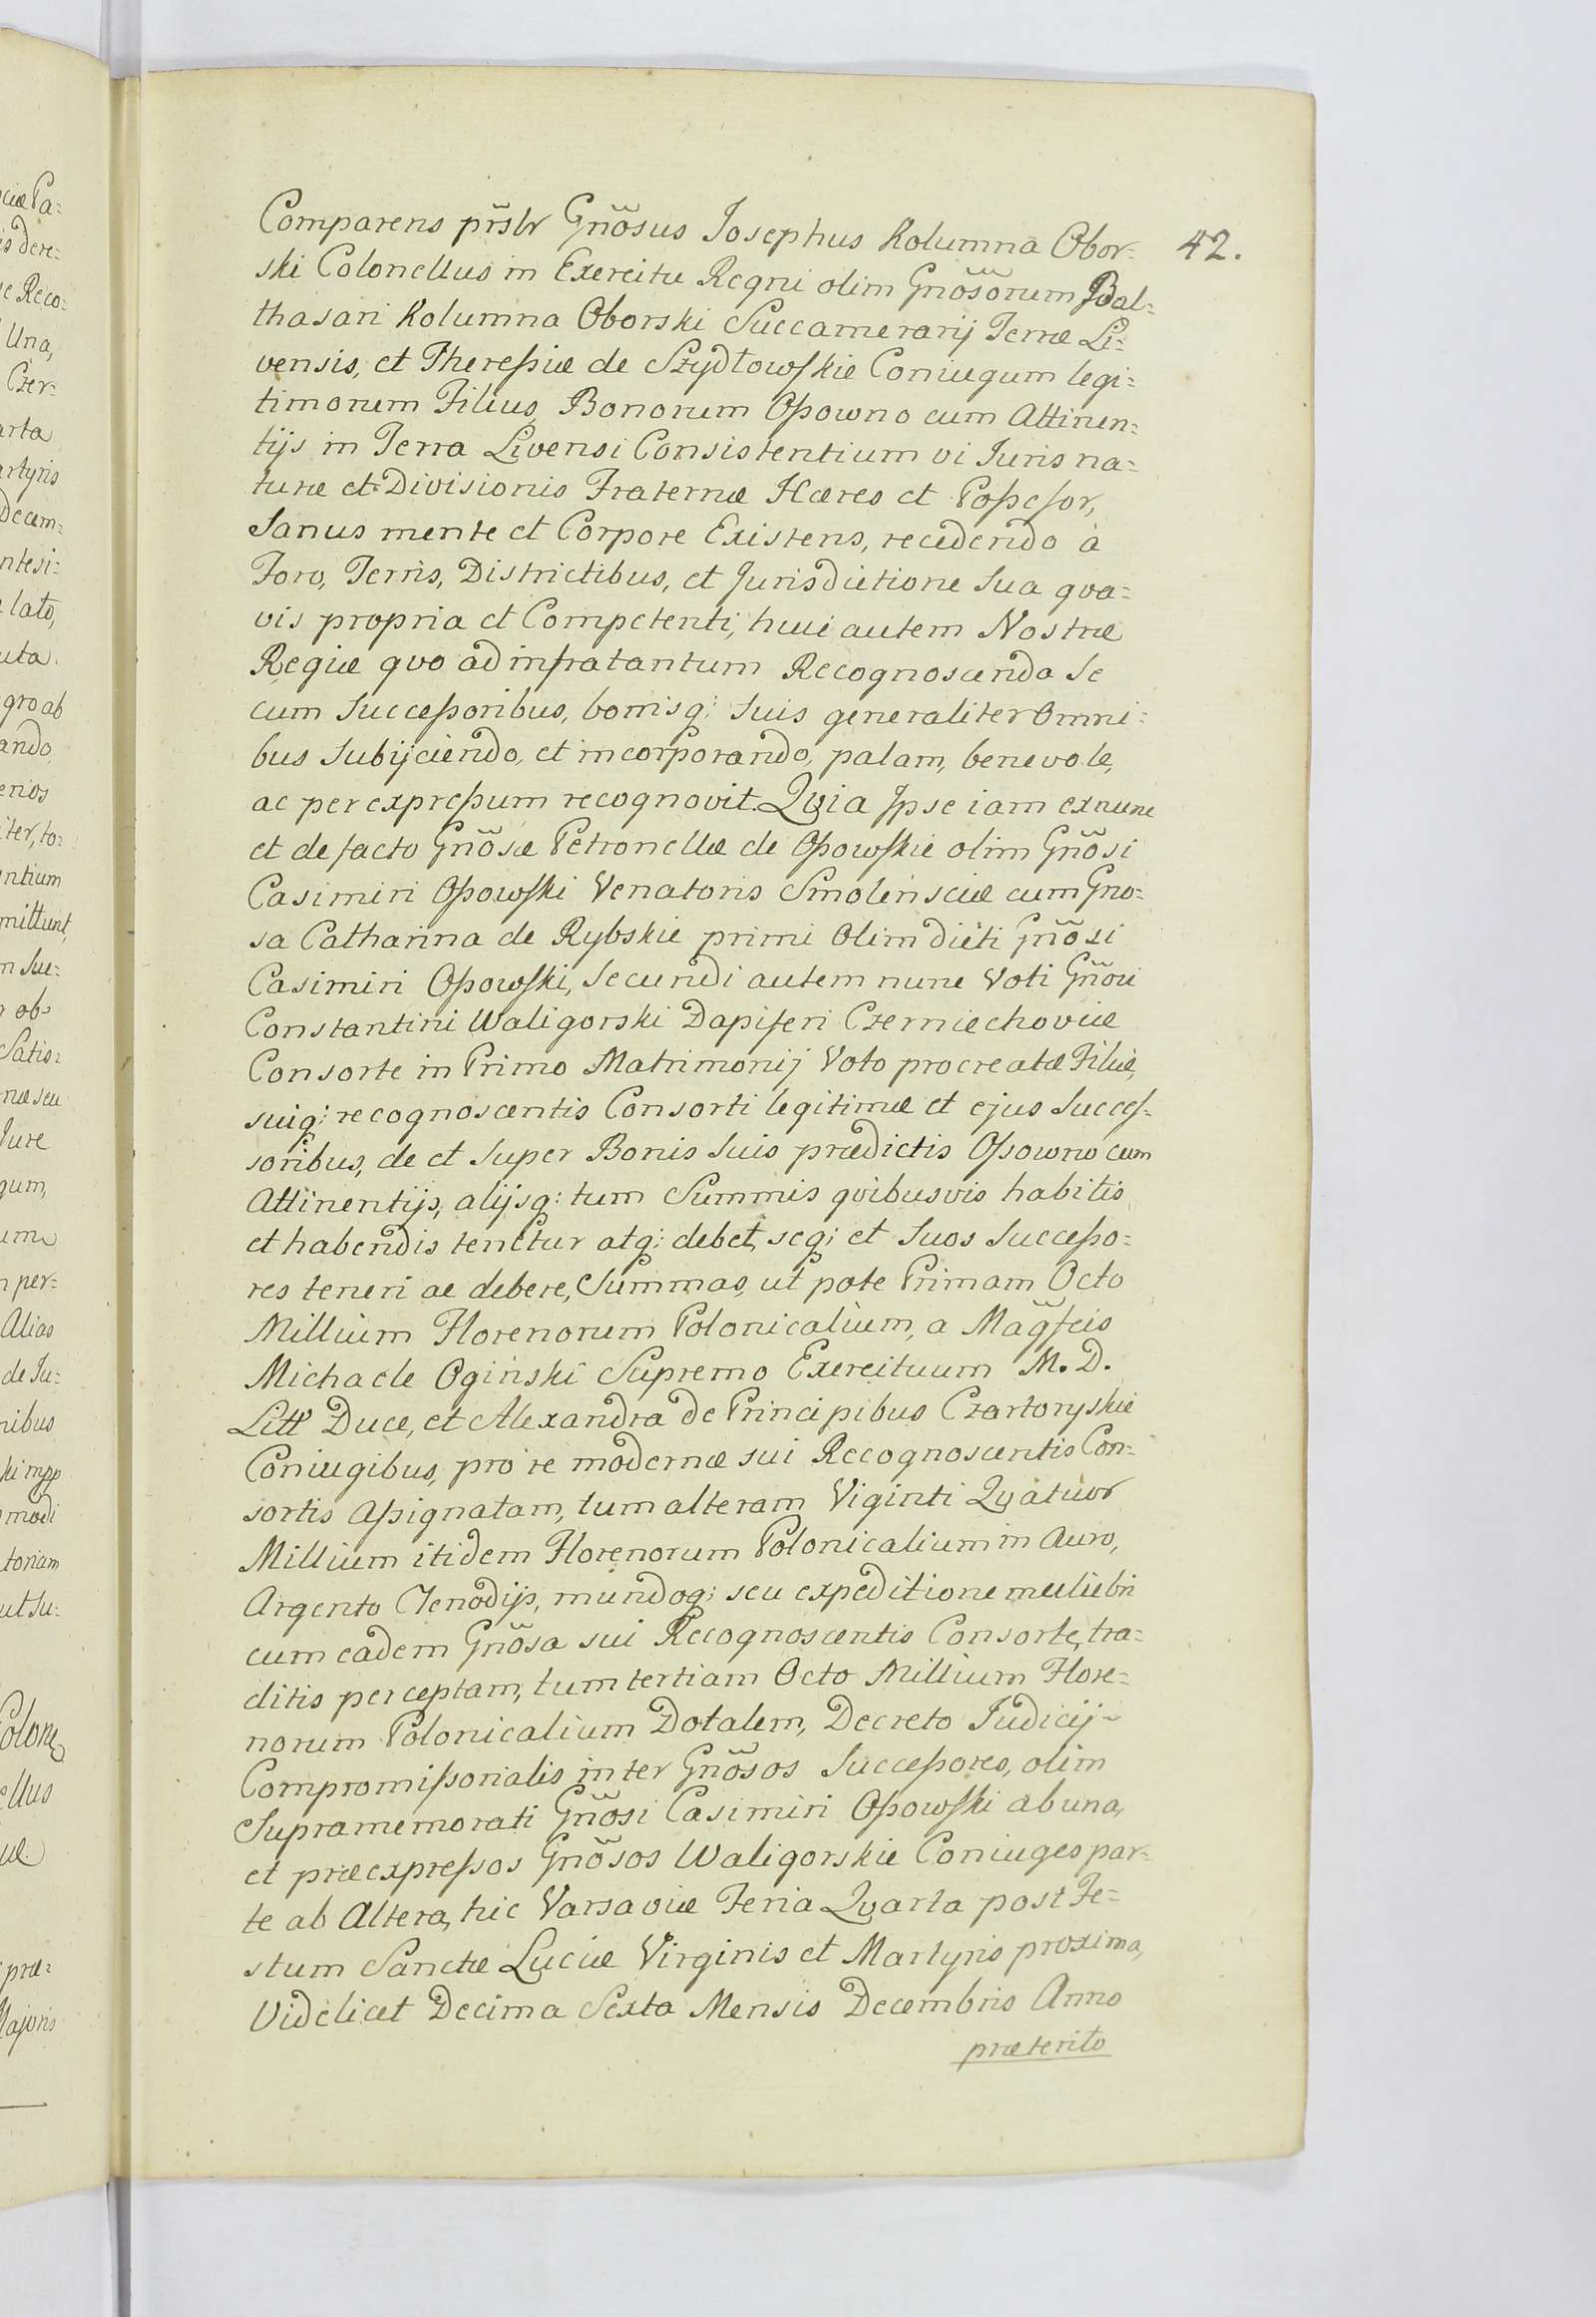 Comparens prslr Gnosus Josephus Kolumna Obor=
42.
ski Colonellus in Exercitu Regni olim Gnosorum Bal=
thasari Kolumna Oborski Succamerarij Terræ Li=
vensis, et Theressiæ de Szydłowskie Coniugum legi=
timorum Filius, Bonorum Ossowno cum Attinen=
tijs in Terra Livensi Consistentium vi Juris na=
turæ et Divisionis Fraternæ Hæres et Possesor,
Sanus mente et Corpore Existens, recedendo à
Foro, Terris, Districtibus, et Jurisdictione Sua qva=
vis propria et Competenti, huic autem Nostræ
Regiæ qvo ad infratantum Recognoscenda Se
cum Successoribus, bonisq; Suis generaliter Omni=
bus Subijciendo, et incorporando, palam, benevole,
ac per expressum recognovit. Qvia Jpse iam exnunc
et de facto Gnosæ Petronellæ de Ossowskie olim Gnosi
Casimiri Ossowski Venatoris Smolensciæ cum Gno=
sa Catharina de Rybskie primi Olim dicti Gnosi
Casimiri Ossowski, Secundi autem nunc Voti Gnosi
Constantini Waligorski Dapiferi Czerniechoviæ
Consorte in Primo Matrimonij Voto procreatæ Filiæ,
suiq; recognoscentis Consorti legitimæ et ejus Succes=
soribus, de et Super Bonis Suis prædictis Ossowno cum
Attinentijs, alijsq; tum Summis qvibusvis habitis
et habendis tenetur atq; debet, seq; et Suos Successo=
res teneri ac debere, Summas, ut pote Primam Octo
Millium Florenorum Polonicalium, a Magfcis
Michaele Ogiński Supremo Exercituum M. D.
Litt Duce, et Alexandra de Principibus Czartoryskie
Coniugibus, pro re modernæ sui Recognoscentis Con=
sortis Assignatam, tum alteram Viginti Qvatuor
Millium itidem Florenorum Polonicalium in Auro,
Argento Clenodijs, mundoq; seu expeditione muliebri
cum eadem Gnosa sui Recognoscentis Consorte, tra=
ditis perceptam, tum tertiam Octo Millium Flore=
norum Polonicalium Dotalem, Decreto Judicij
Compromissorialis inter Gnosos Successores, olim
Supramemorati Gnosi Casimiri Ossowski ab una,
et præexpressos Gnosos Waligorskie Coniuges par=
te ab Altera, hic Varsaviæ Feria Qvarta post Fe=
stum Sanctæ Luciæ Virginis et Martyris proxima,
Videlicet Decima Sexta Mensis Decembris Anno
præterito